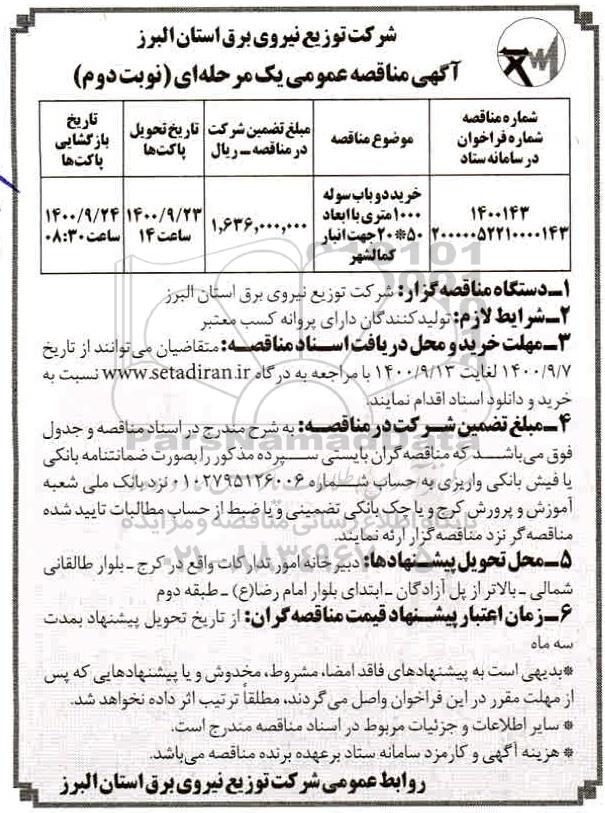 شرکت توزیع نیروی برق استان البرز
آگهی مناقصه عمومی یک مرحله‌ای (نوبت دوم)
شماره مناقصه
شماره فراخوان
در سامانه ستاد
موضوع مناقصه
مبلغ تضمین شرکت
در مناقصه ـ ریال
تاریخ تحویل
پاکت‌ها
تاریخ
بازگشایی
پاکت‌ها
۱۴۰۰۱۴۳
۲۰۰۰۰۰۵۲۲۱۰۰۰۰۱۴۳
خرید دو باب سوله
۱۰۰۰ متری با ابعاد
۵۰*۲۰ جهت انبار
کمالشهر
۱,۶۳۶,۰۰۰,۰۰۰
۱۴۰۰/۹/۲۳
ساعت ۱۴
۱۴۰۰/۹/۲۴
ساعت ۰۸:۳۰
۱ـ دستگاه مناقصه گزار: شرکت توزیع نیروی برق استان البرز
۲ـ شرایط لازم: تولیدکنندگان دارای پروانه کسب معتبر
۳ـ مهلت خرید و محل دریافت اسناد مناقصه: متقاضیان می‌توانند از تاریخ
۱۴۰۰/۹/۷ لغایت ۱۴۰۰/۹/۱۳ با مراجعه به درگاه www.setadiran.ir نسبت به
خرید و دانلود اسناد اقدام نمایند.
۴ـ مبلغ تضمین شرکت در مناقصه: به شرح مندرج در اسناد مناقصه و جدول
فوق می‌باشد که مناقصه‌گران بایستی سپرده مذکور را بصورت ضمانتنامه بانکی
یا فیش بانکی واریزی به حساب شماره ۰۱۰۲۷۹۵۱۲۶۰۰۶ نزد بانک ملی شعبه
آموزش و پرورش کرج و یا چک بانکی تضمینی و یا ضبط از حساب مطالبات تایید شده
مناقصه‌گر نزد مناقصه‌گزار ارئه نمایند.
۵ـ محل تحویل پیشنهادها: دبیرخانه امور تدارکات واقع در کرج ـ بلوار طالقانی
شمالی ـ بالاتر از پل آزادگان ـ ابتدای بلوار امام رضا(ع) ـ طبقه دوم
۶ـ زمان اعتبار پیشنهاد قیمت مناقصه‌گران: از تاریخ تحویل پیشنهاد بمدت
سه ماه
*بدیهی است به پیشنهادهای فاقد امضا، مشروط، مخدوش و یا پیشنهادهایی که پس
از مهلت مقرر در این فراخوان واصل می‌گردند، مطلقاً ترتیب اثر داده نخواهد شد.
* سایر اطلاعات و جزئیات مربوط در اسناد مناقصه مندرج است.
* هزینه آگهی و کارمزد سامانه ستاد بر عهده برنده مناقصه می‌باشد.
روابط عمومی شرکت توزیع نیروی برق استان البرز
ParsNamadData
پایگاه اطلاع رسانی مناقصه و مزایده